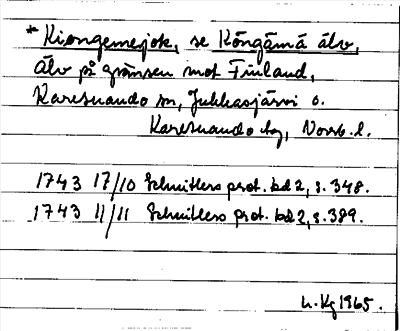 * Kiongemejok, se Köngämä älv,
älv på gränsen mot Finland,
Karesuando sn, Jukkasjärvi o.
Karesuando tg, Norrb. l.
1743 17/10 Schnitlers prot. bd 2, s. 348.
1743 11/11 Schnitlers prot. bd 2, s. 389.
u. Kg 1965.